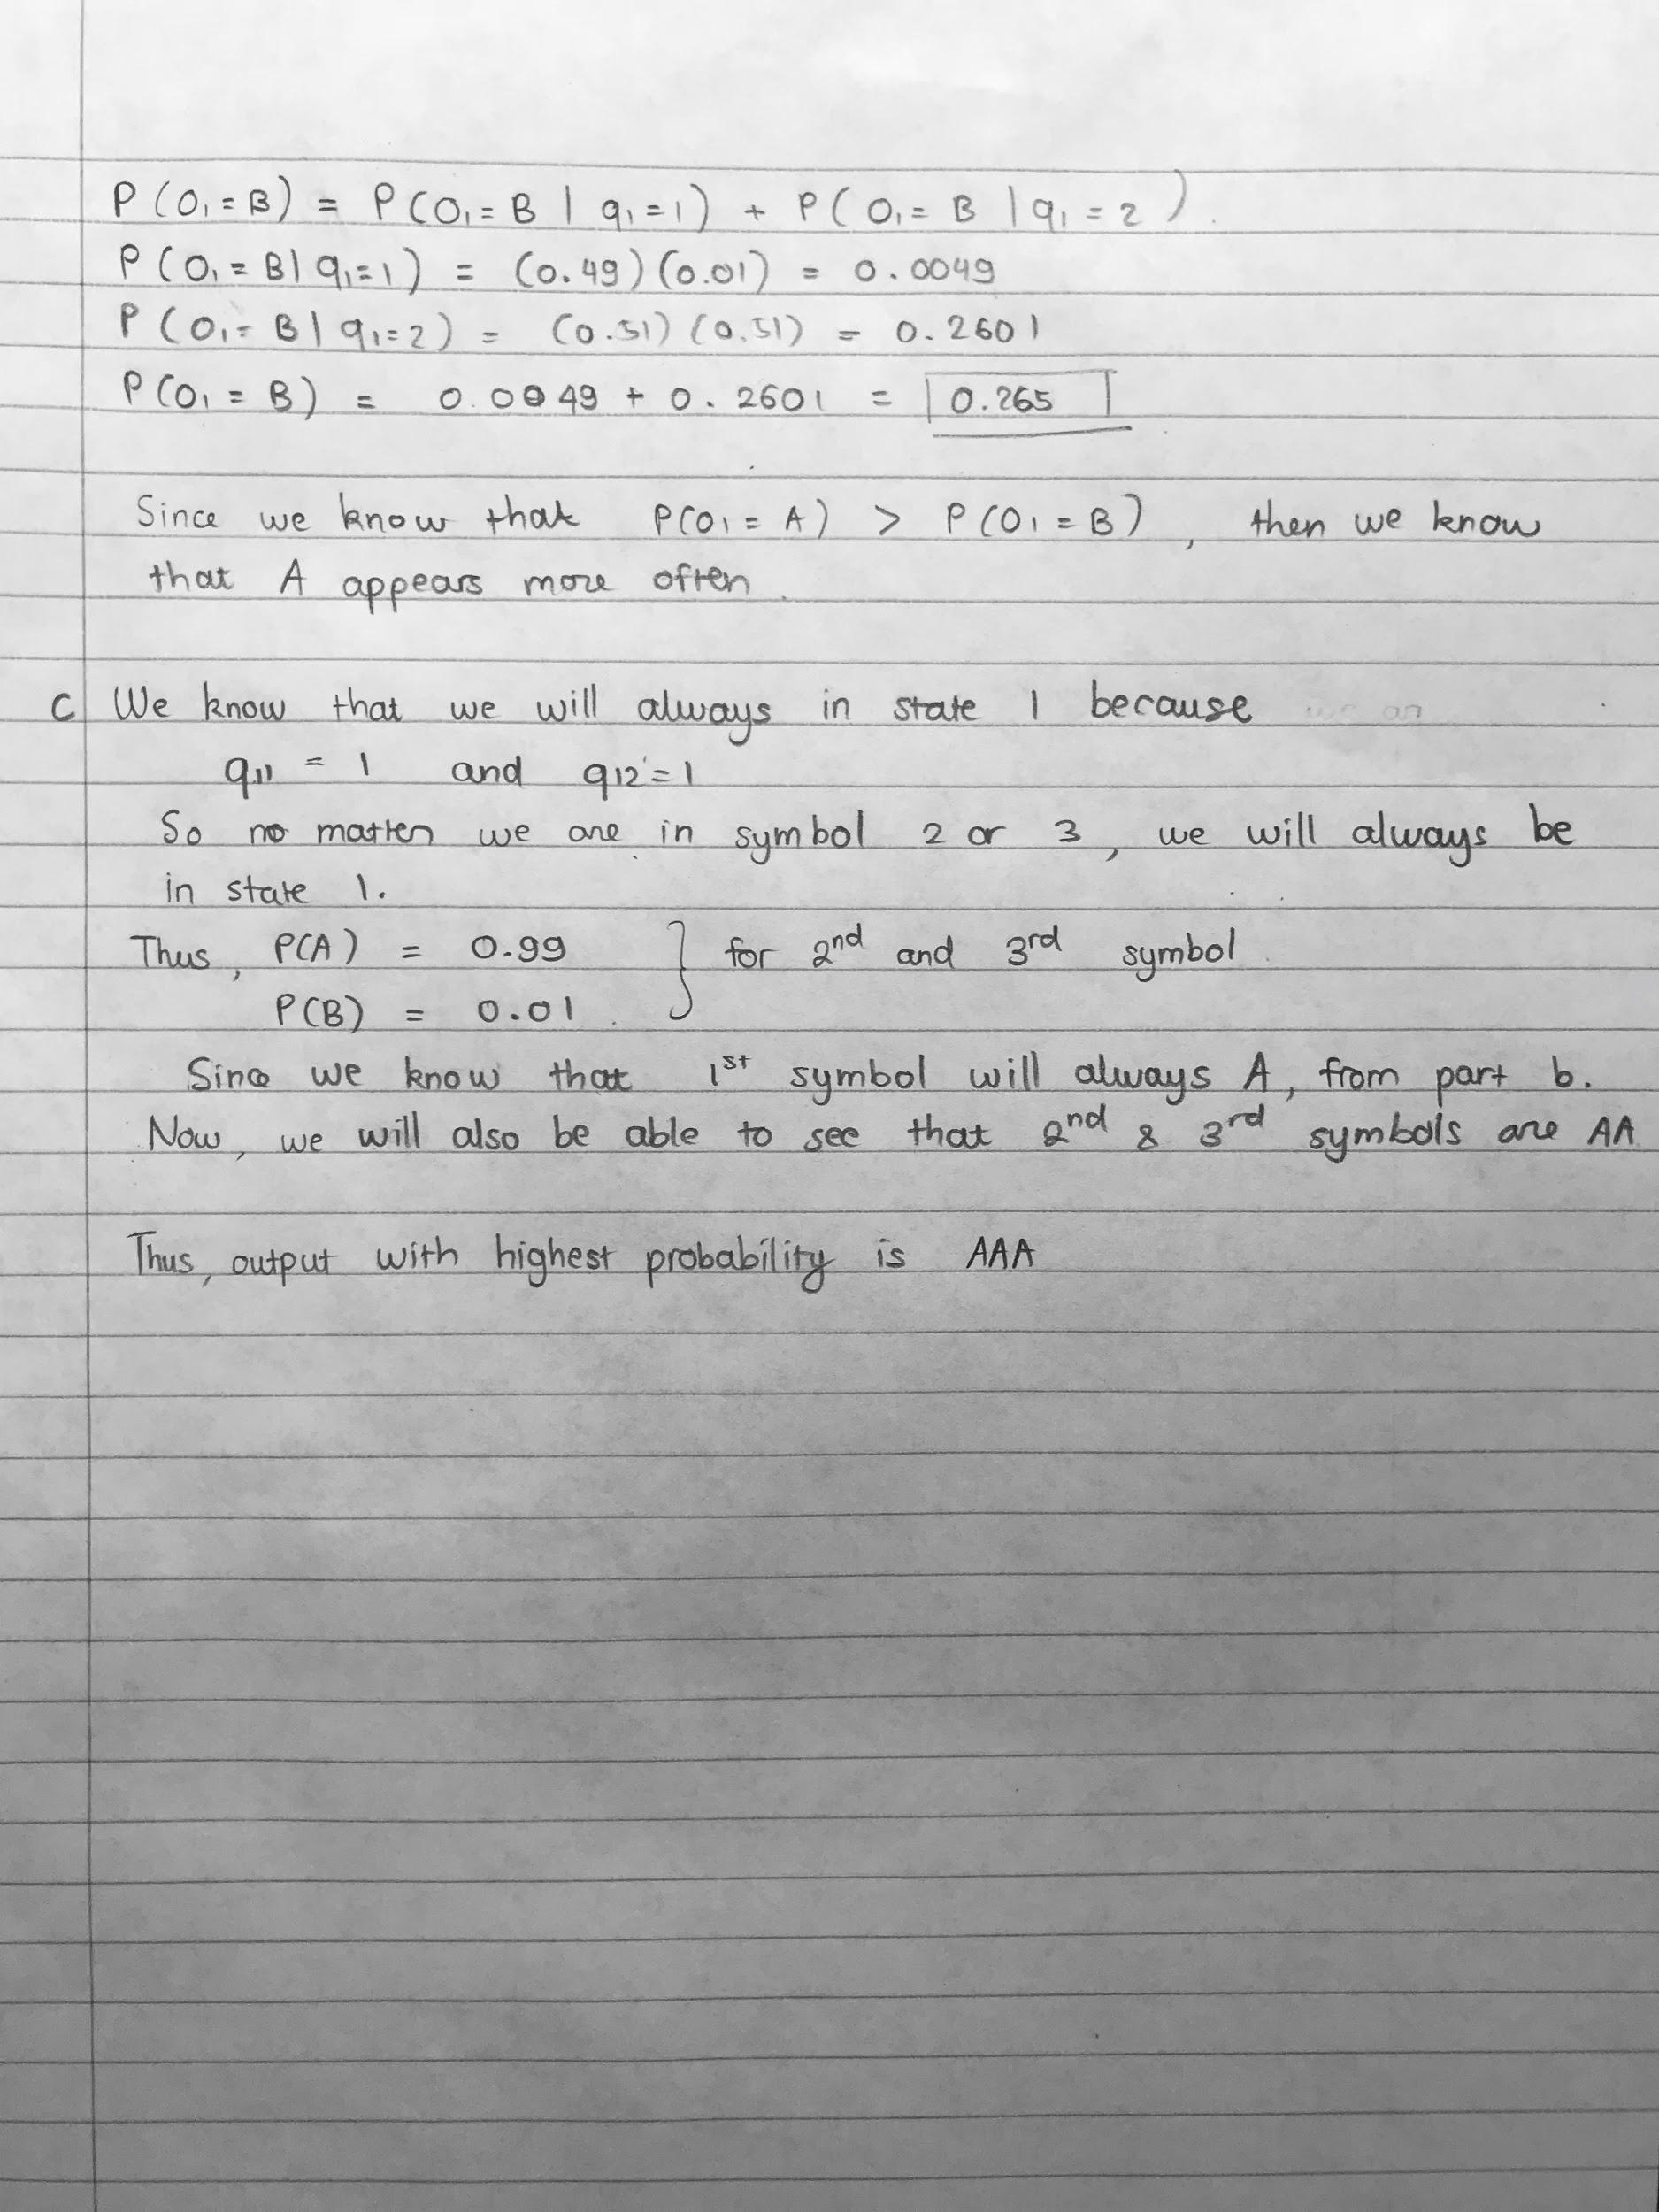 P(O₁ = B) = P(O₁ = B | q₁ = 1) + P(O₁ = B | q₁ = 2).
P(O₁ = B | q₁ = 1) = (0.49)(0.01) = 0.0049
P(O₁ = B | q₁ = 2) = (0.51)(0.51) = 0.2601
P(O₁ = B) = 0.0049 + 0.2601 = 0.265
Since we know that P(O₁ = A) > P(O₁ = B), then we know
that A appears more often.
c We know that we will always in state 1 because
q₁₁ = 1 and q₁₂ = 1
So no matter we are in symbol 2 or 3, we will always be
in state 1.
Thus, P(A) = 0.99 } for 2nd and 3rd symbol.
P(B) = 0.01.
Since we know that 1st symbol will always A, from part b.
Now, we will also be able to see that 2nd & 3rd symbols are AA
Thus, output with highest probability is AAA